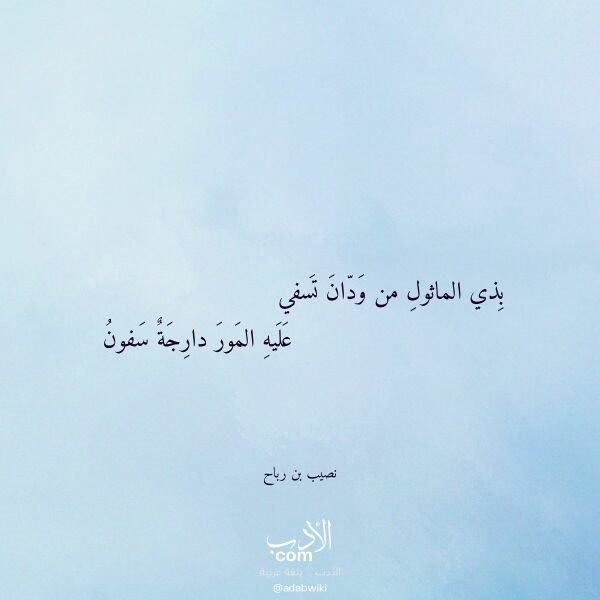 بِذي الماثولِ من وَدّانَ تَسفي
عَلَيهِ المَورَ دارِجَةٌ سَفونُ
نصيب بن رباح
الأدب
com
الأدب .. بلغة عربية
@adabwiki